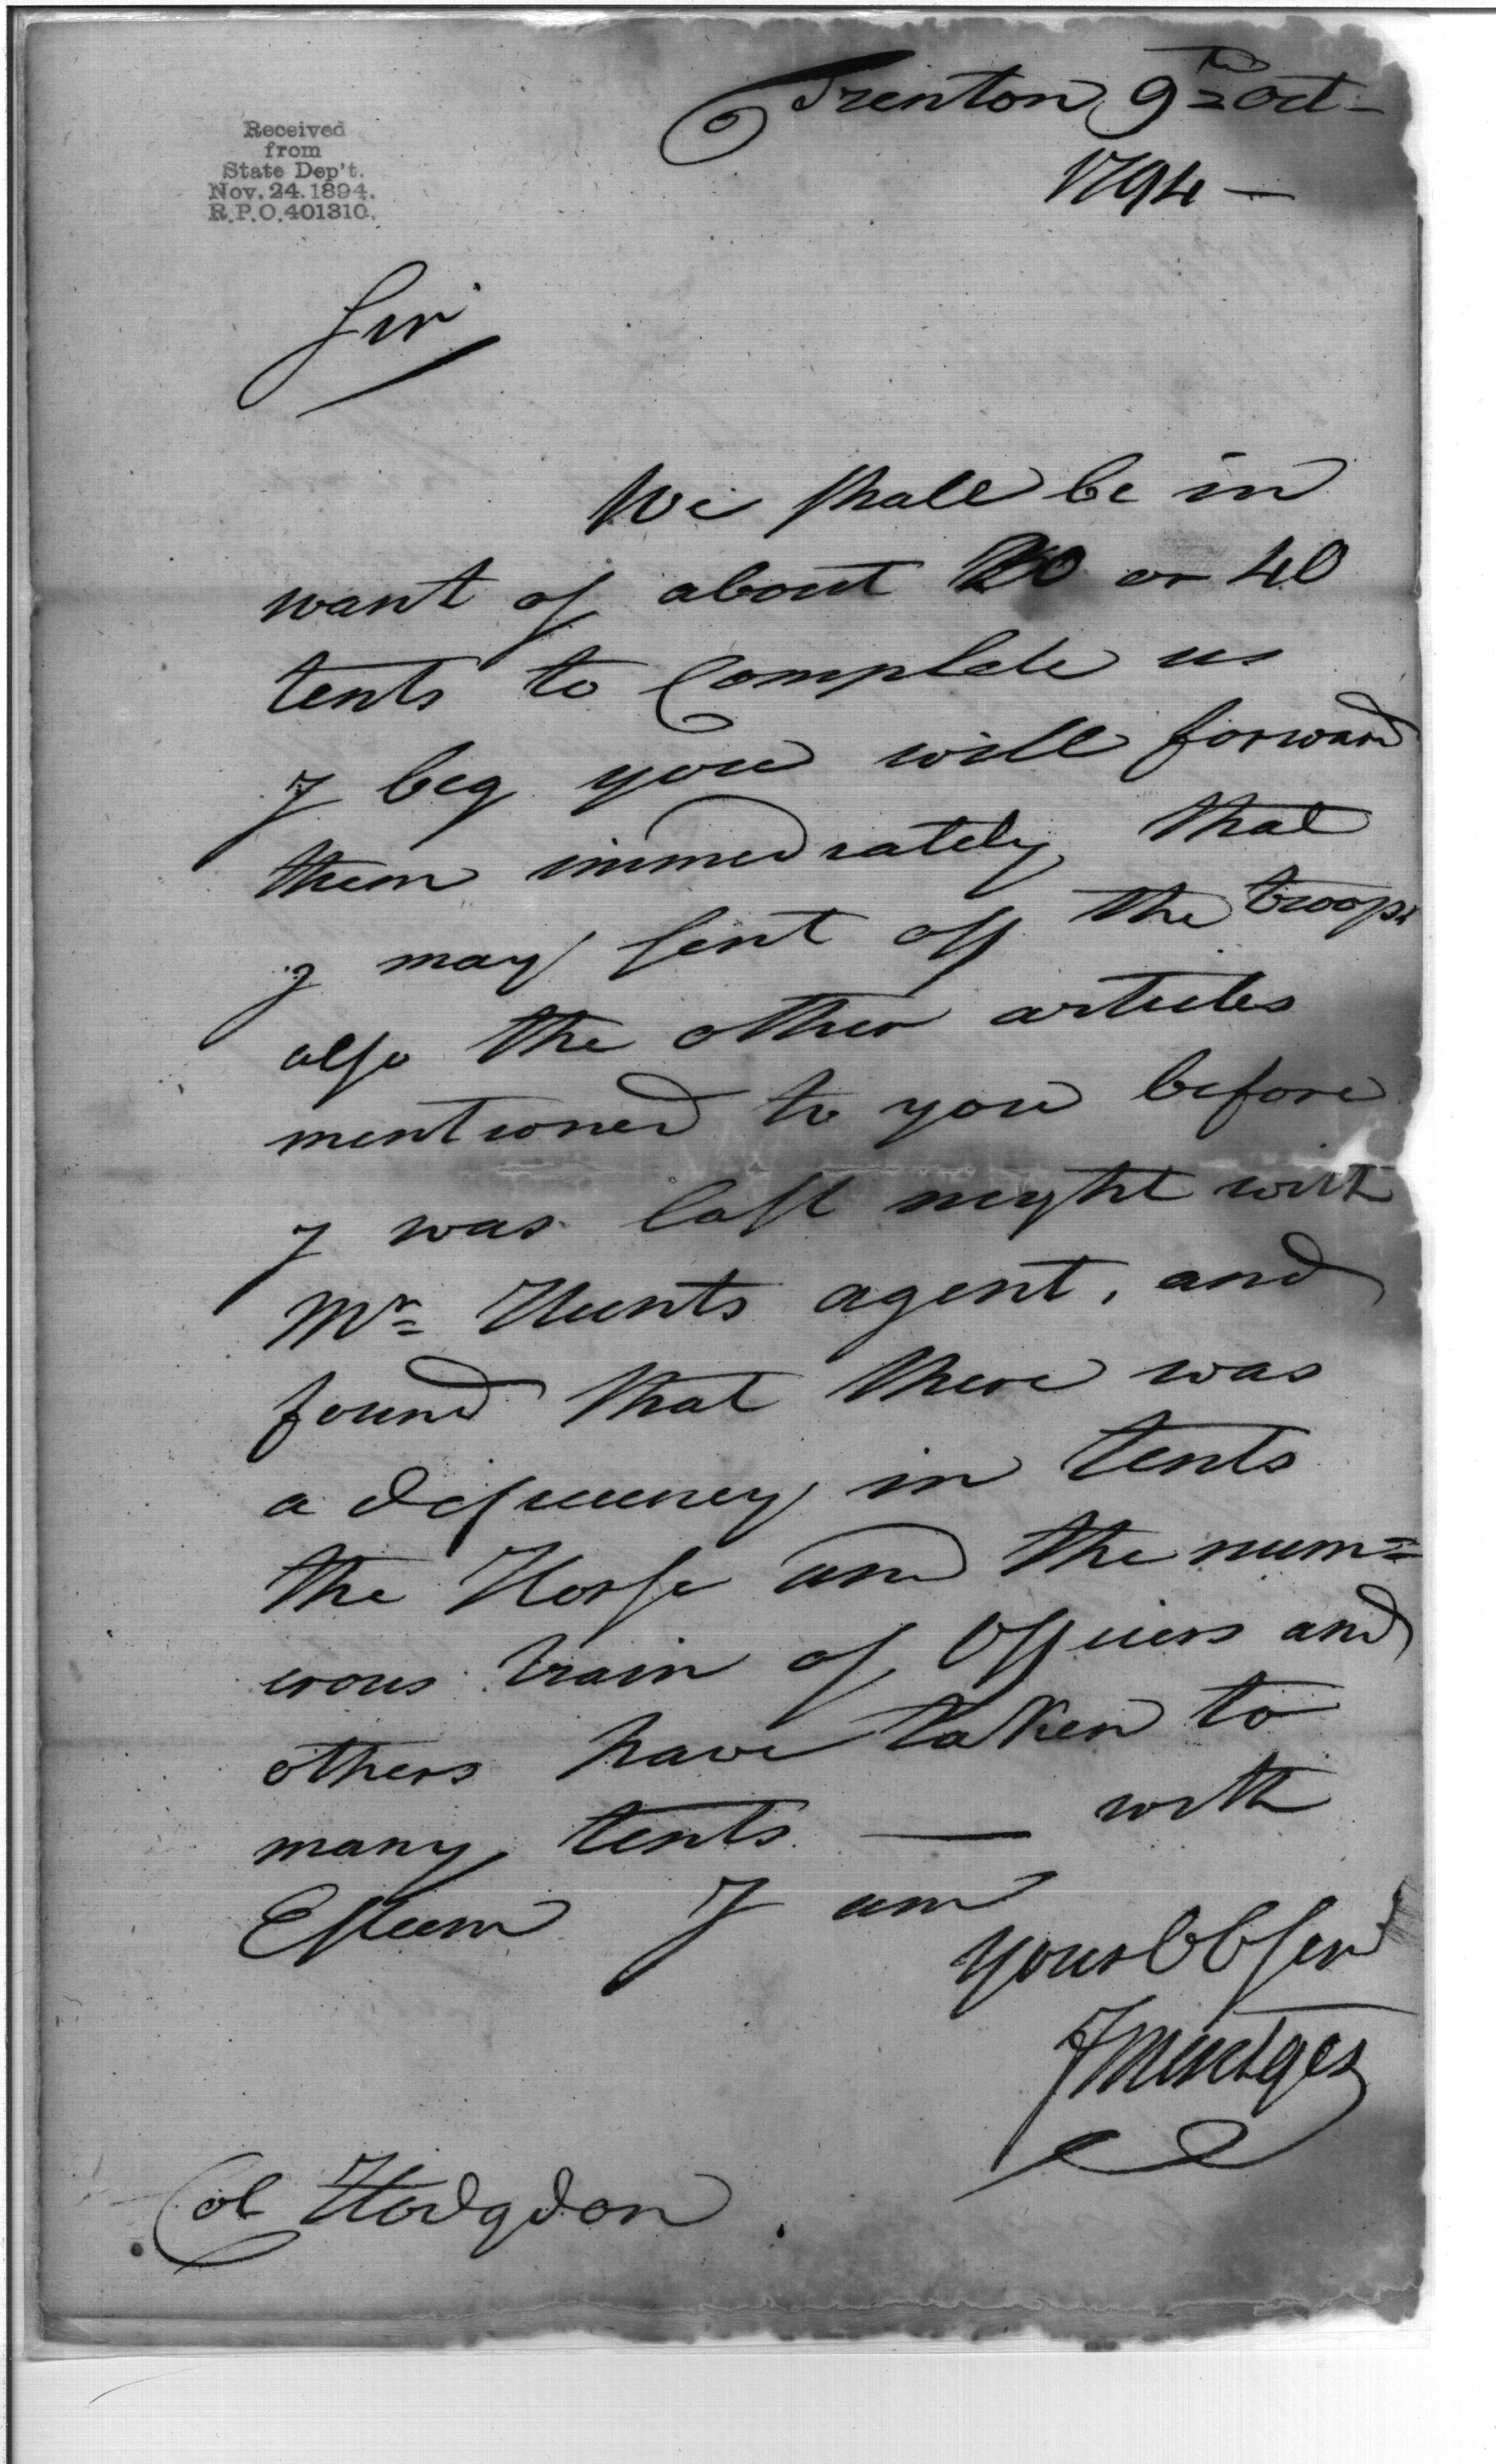 Trenton 9th Oct
1794 —
Received
from
State Dep't.
Nov. 24. 1894.
R.P.O. 401310.
Sir
We shall be in
want of about or 40
tents to Complete us
I beg you will forward
them immediately that
I may sent off the troops
also the other articles
mentioned to you before
I was last night with
Mr Hunts agent, and
found that there was
a deficiency in tents
the Horse and the num=
erous train of Officers and
others have taken to
many tents — with
Esteem I am
your Ob Ser
F Mentges
Col Hodgdon